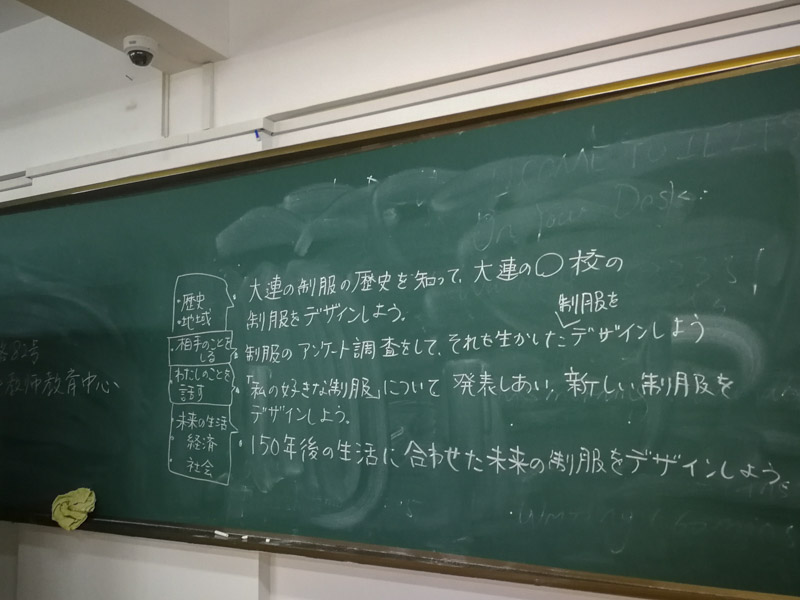 WELCOME TO
On your Desk:
・歴史
・地域
・大連の制服の歴史を知って、大連の○校の
制服をデザインしよう。
・相手のことを
しる
制服を
・制服のアンケート調査をして、それを生かしたデザインしよう
わたしのことを
話す
・「私の好きな制服」について発表しあい、新しい制服を
デザインしよう。
・未来の生活
経済
社会
・150年後の生活に合わせた未来の制服をデザインしよう。
教師教育中心